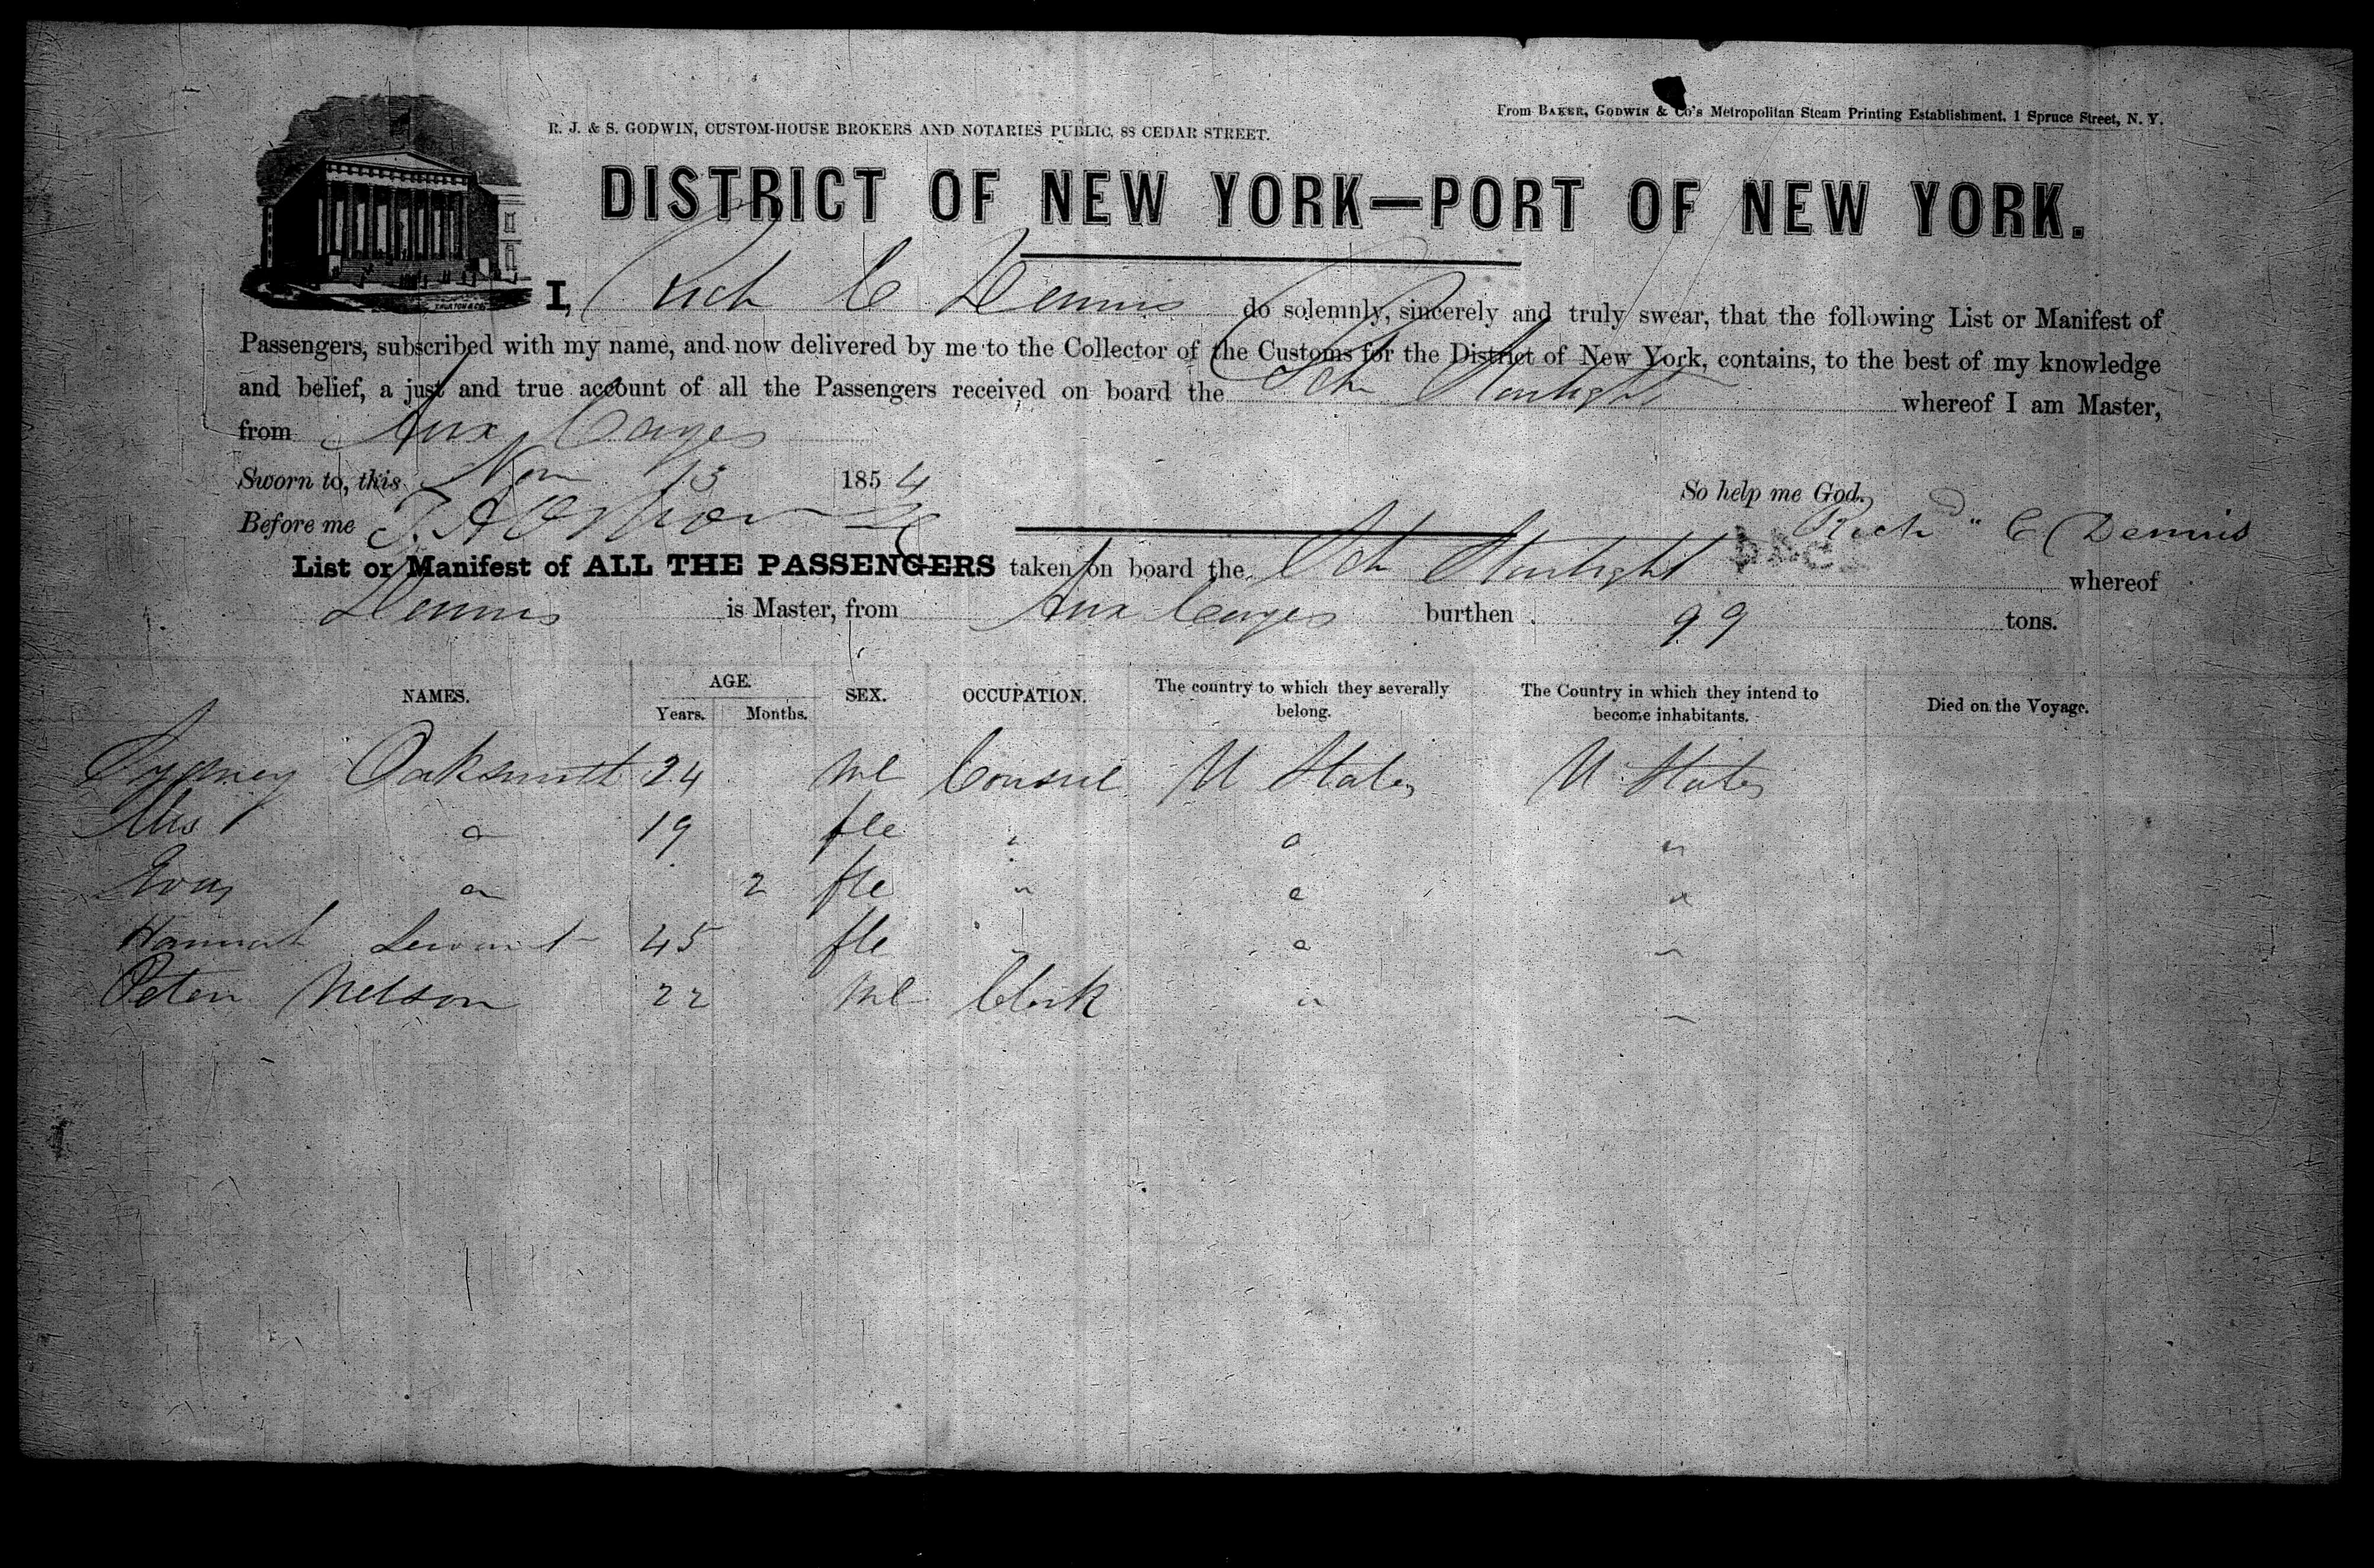 From BAKER, GODWIN & Co's Metropolitan Steam Printing Establishment, 1 Spruce Street, N. Y.
R. J. & S. GODWIN, CUSTOM-HOUSE BROKERS AND NOTARIES PUBLIC, 88 CEDAR STREET.
DISTRICT OF NEW YORK—PORT OF NEW YORK.
I, Rich C Dennis do solemnly, sincerely and truly swear, that the following List or Manifest of
Passengers, subscribed with my name, and now delivered by me to the Collector of the Customs for the District of New York, contains, to the best of my knowledge
and belief, a just and true account of all the Passengers received on board the Sch Starlight whereof I am Master,
from Aux Cayes
Sworn to, this Nov 13 1854 So help me God.
Before me Richd C Dennis
List or Manifest of ALL THE PASSENGERS taken on board the Sch Starlight whereof
Dennis is Master, from Aux Cayes burthen 99 tons.
NAMES. AGE. Years. Months. SEX. OCCUPATION. The country to which they severally belong. The Country in which they intend to become inhabitants. Died on the Voyage.
Sydney Oaksmith 24 ml Consul U States U States
Mrs " 19 fle " " "
" 2 fle " " "
Hannah 45 fle " "
Peter Nelson 22 ml Clerk " "